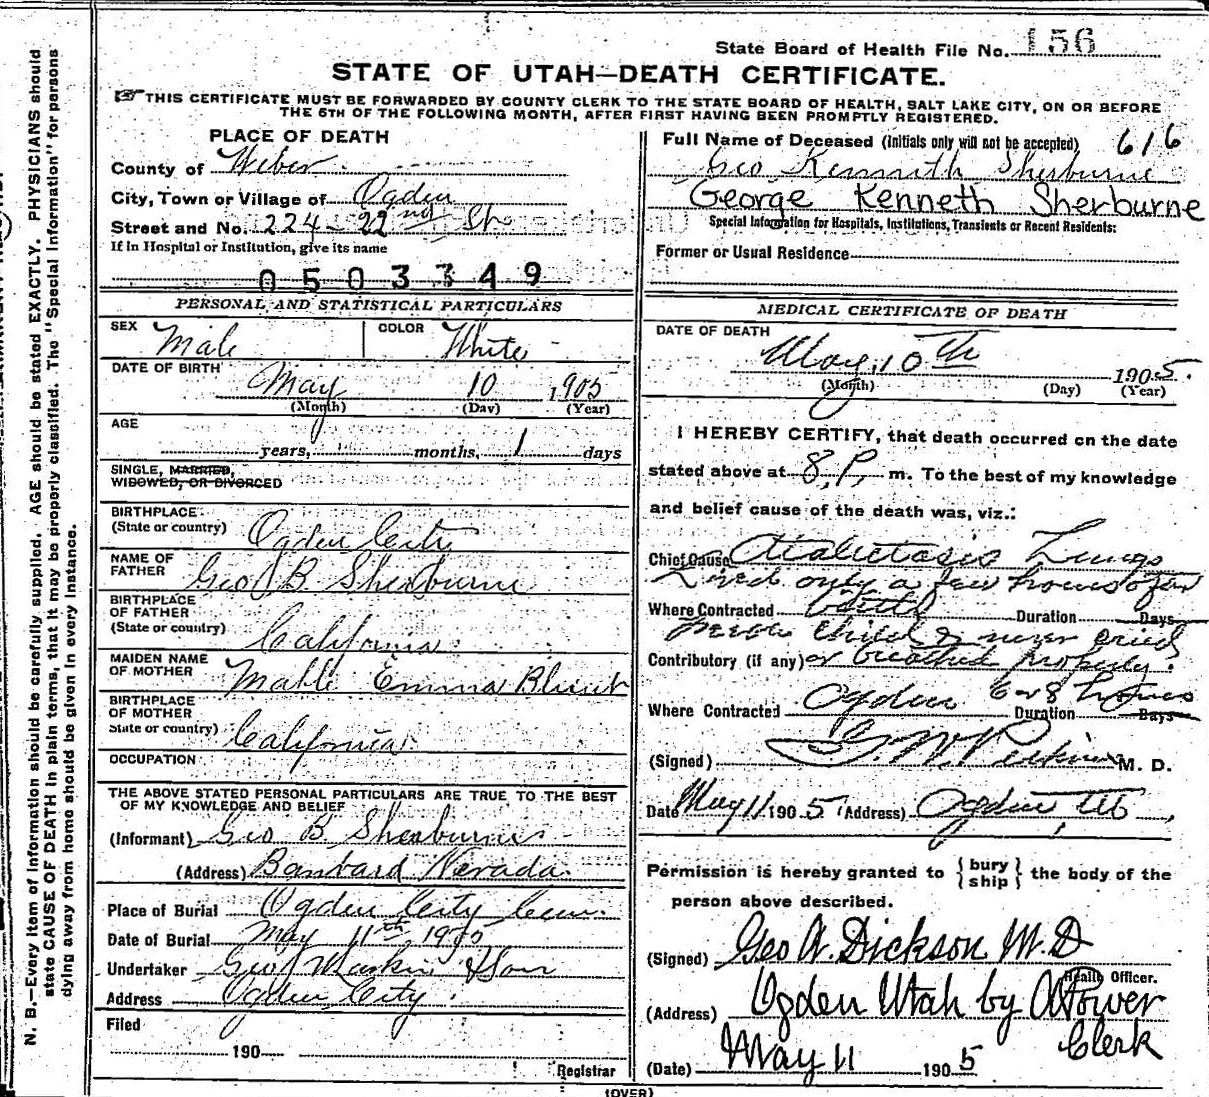 State Board of Health File No. 156
STATE OF UTAH—DEATH CERTIFICATE.
THIS CERTIFICATE MUST BE FORWARDED BY COUNTY CLERK TO THE STATE BOARD OF HEALTH, SALT LAKE CITY, ON OR BEFORE
THE 6TH OF THE FOLLOWING MONTH, AFTER FIRST HAVING BEEN PROMPTLY REGISTERED.
PLACE OF DEATH
County of Weber
City, Town or Village of Ogden
Street and No. 224-22nd St
If in Hospital or Institution, give its name
0503349
PERSONAL AND STATISTICAL PARTICULARS
SEX Male COLOR White
DATE OF BIRTH May 10 1905
(Month) (Day) (Year)
AGE
years, months, 1 days
SINGLE, MARRIED,
WIDOWED, OR DIVORCED
BIRTHPLACE
(State or country) Ogden City
NAME OF
FATHER Geo B Sherburne
BIRTHPLACE
OF FATHER
(State or country) California
MAIDEN NAME
OF MOTHER Emma
BIRTHPLACE
OF MOTHER
State or country) California
OCCUPATION
THE ABOVE STATED PERSONAL PARTICULARS ARE TRUE TO THE BEST
OF MY KNOWLEDGE AND BELIEF
(Informant) Geo B Sherburne
(Address) Nevada
Place of Burial Ogden City Cem.
Date of Burial May 11th 1905
Undertaker Geo & Son
Address Ogden City
Filed
190
Registrar
Full Name of Deceased (Initials only will not be accepted) 616
Geo Kenneth Sherburne
George Kenneth Sherburne
Special Information for Hospitals, Institutions, Transients or Recent Residents:
Former or Usual Residence
MEDICAL CERTIFICATE OF DEATH
DATE OF DEATH
May 10th 1905.
(Month) (Day) (Year)
I HEREBY CERTIFY, that death occurred on the date
stated above at 8 P. m. To the best of my knowledge
and belief cause of the death was, viz.:
Chief Cause Lungs
Lived only a few hours after
Where Contracted birth Duration Days
child never cried
Contributory (if any) or breathed properly.
Where Contracted Ogden Duration 6 or 8 hours Days
(Signed) G. W. Perkins M. D.
Date May 11 1905 (Address) Ogden, Ut
Permission is hereby granted to {bury ship} the body of the
person above described.
(Signed) Geo A. Dickson M.D
Health Officer.
(Address) Ogden Utah by A Power
Clerk
(Date) May 11 1905
(OVER)
N. B.—Every item of information should be carefully supplied. AGE should be stated EXACTLY. PHYSICIANS should
state CAUSE OF DEATH in plain terms, that it may be properly classified. The "Special Information" for persons
dying away from home should be given in every instance.